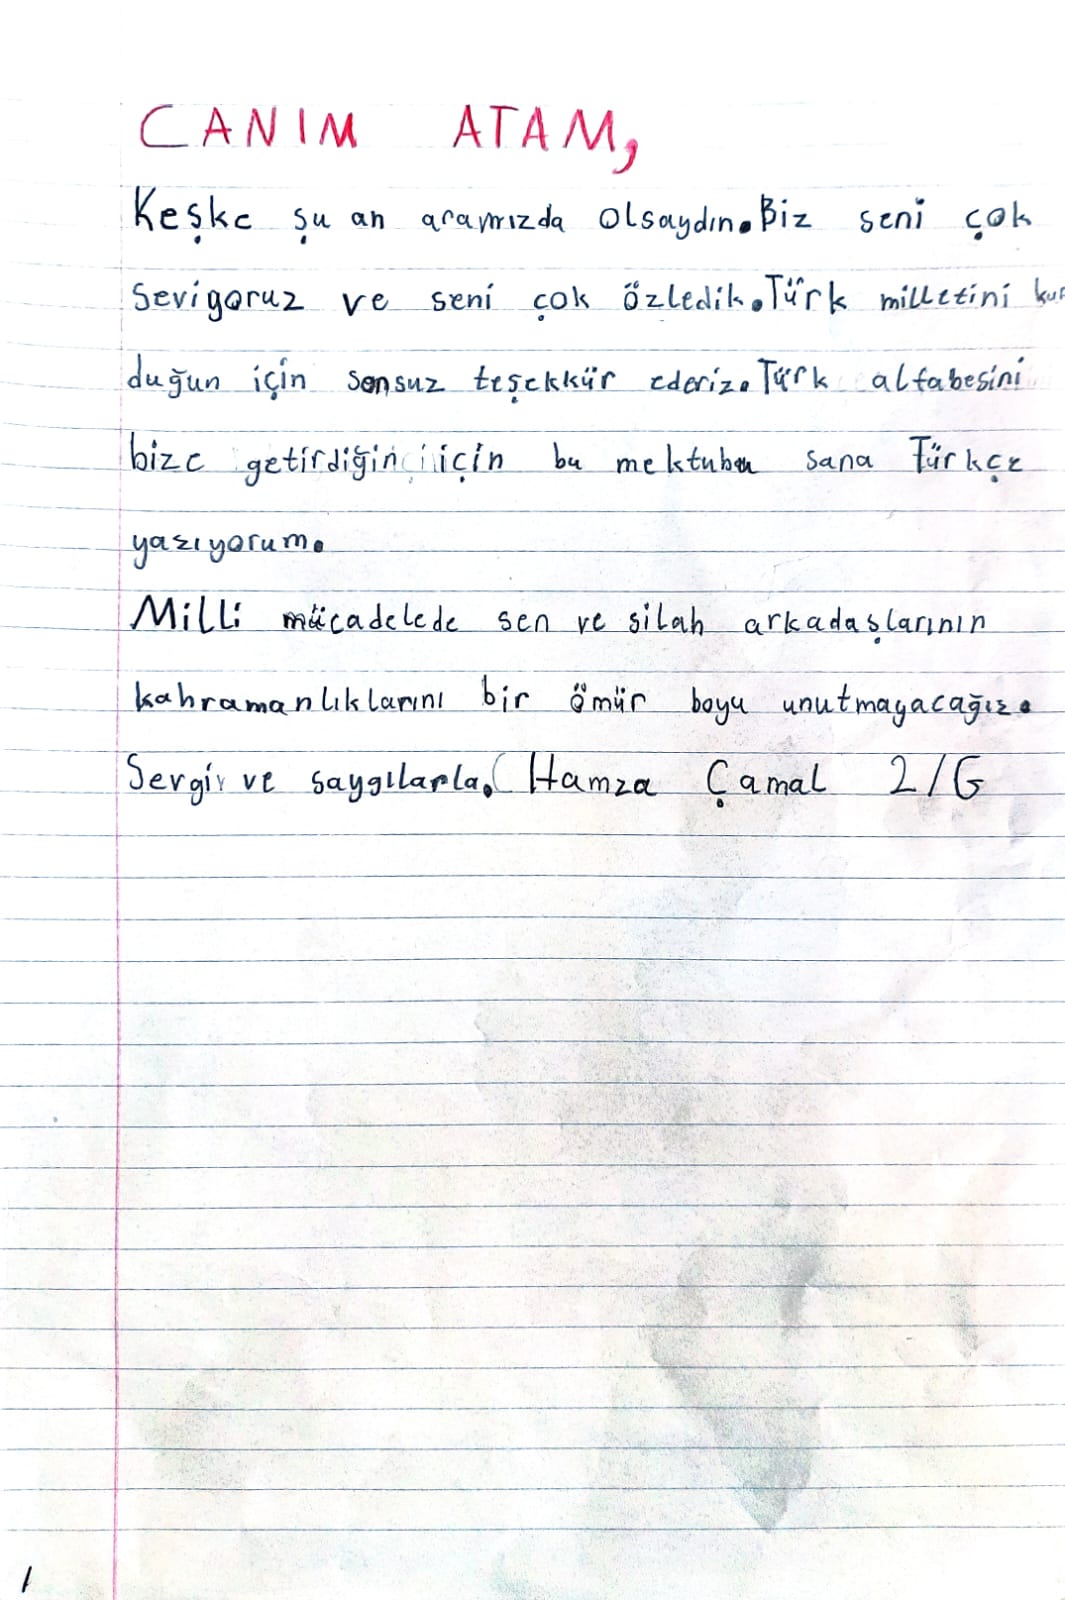 CANIM ATAM,
Keşke şu an aramızda olsaydın. Biz seni çok
sevigoruz ve seni çok özledik. Türk milletini kur
duğun için sonsuz teşekkür ederiz. Türk alfabesini
bize getirdiğin için bu mektubu sana Türkçe
yazıyorum.
Milli mücadelede sen ve silah arkadaşlarının
kahramanlıklarını bir ömür boyu unutmayacağız.
Sergi ve saygılarla, Hamza Çamal 2/G